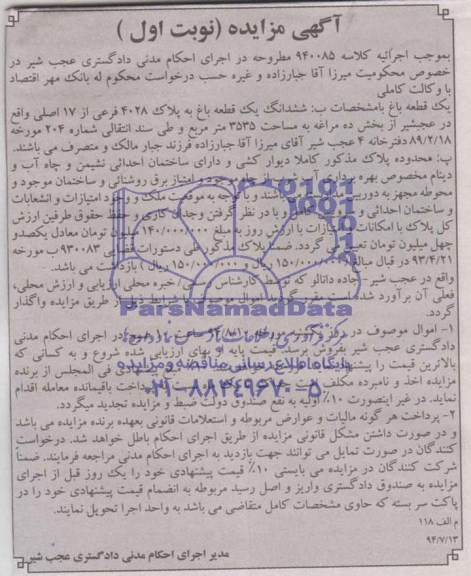 آگهی مزایده (نوبت اول)
بموجب اجرائیه کلاسه ۹۴۰۰۸۵ مطروحه در اجرای احکام مدنی دادگستری عجب شیر در
خصوص محکومیت میرزا آقا جبارزاده و غیره حسب درخواست محکوم له بانک مهر اقتصاد
با وکالت کاملی
یک قطعه باغ بامشخصات ب: ششدانگ یک قطعه باغ به پلاک ۴۰۲۸ فرعی از ۱۷ اصلی واقع
در عجبشیر از بخش ده مراغه به مساحت ۳۵۳۵ متر مربع و طی سند انتقالی شماره ۲۰۴ مورخه
۸۹/۲/۱۸ دفترخانه ۴ عجب شیر آقای میرزا آقا جبارزاده فرزند جبار مالک و متصرف می باشند.
پ: محدوده پلاک مذکور کاملا دیوار کشی و دارای ساختمان احداثی نشیمن و چاه آب و
دینام مخصوص بهره برداری آب شرب از چاه موجود و امتیاز برق روشنائی و ساختمان موجود و
محوطه مجهز به دوربین باشند و با توجه به موقعیت ملک و وجود امتیازات و انشعابات
و ساختمان احداثی و با در نظر گرفتن وجدان کاری و حفظ حقوق طرفین ارزش
کل پلاک با امکانات و امتیازات با ارزش روز به مبلغ ۱۴۰/۰۰۰/۰۰۰ میلیون تومان معادل یکصدو
چهل میلیون تومان می گردد. ضمنا پلاک مذکور طی دستورات ۹۳۰۰۸۳ ب مورخ
۹۳/۴/۲۱ در قبال مبالغ ۱۵۰/۰۰۰/۰۰۰ ریال و ۱۵۰/۰۰۰/۰۰۰ ریال بازداشت می باشد.
واقع در عجب شیر - جاده دانالو که توسط کارشناس رسمی/خبره محلی ارزیابی و ارزش محلی،
فعلی آن برآورد شده است مقرر گردید اموال موصوف با شرایط ذیل از طریق مزایده واگذار
گردد.
۱- اموال موصوف در روز در اجرای احکام مدنی
دادگستری عجب شیر بفروش برسد. قیمت پایه از بهای ارزیابی شده شروع و به کسانی که
بالاترین قیمت را فی المجلس از برنده
مزایده اخذ و نامبرده مکلف پرداخت باقیمانده معامله اقدام
نماید. در غیر اینصورت ۱۰٪ اولیه به نفع صندوق دولت ضبط و مزایده تجدید میگردد.
۲- پرداخت هر گونه مالیات و عوارض مربوطه و استعلامات قانونی بعهده برنده مزایده می باشد
و در صورت داشتن مشکل قانونی مزایده از طریق اجرای احکام باطل خواهد شد. درخواست
کنندگان در صورت تمایل می توانند جهت بازدید به اجرای احکام مدنی مراجعه فرمایند. ضمناً
شرکت کنندگان در مزایده می بایستی ۱۰٪ قیمت پیشنهادی خود را یک روز قبل از اجرای
مزایده به صندوق دادگستری واریز و اصل رسید مربوطه به انضمام قیمت پیشنهادی خود را در
پاکت سر بسته که حاوی مشخصات کامل متقاضی می باشد به واحد اجرا تحویل نمایند.
م الف ۱۱۸
۹۴/۷/۱۳
مدیر اجرای احکام مدنی دادگستری عجب شیر
ParsNamadData
پایگاه اطلاع رسانی مناقصه و مزایده
۰۲۱-۸۸۳۴۹۶۷۰-۵